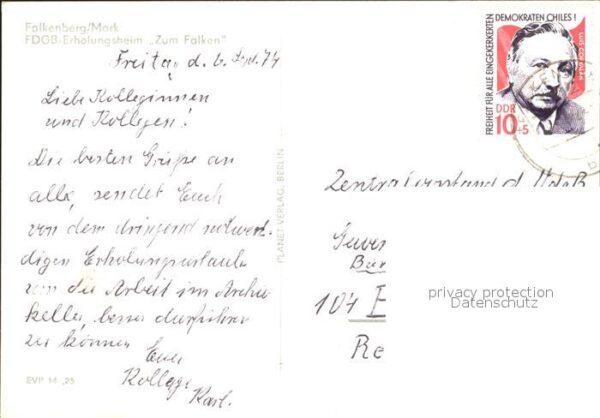 Falkenberg/Mark
FDGB-Erholungsheim „Zum Falken"
Freitag d. 6. Sept. 74
Liebe Kolleginnen
und Kollegen!
Die besten Grüße an
alle, sendet Euch
von dem dringend notwen-
digen Erholungsurlaub
um die Arbeit im Archiv
keller, besser durchführen
zu können
Euer
Kollege
Karl.
EVP M ,25
PLANET-VERLAG, BERLIN
FREIHEIT FÜR ALLE EINGEKERKERTEN
DEMOKRATEN CHILES!
LUIS CORVALAN
DDR
10+5
Zentralvorstand d.
Gewer
104
privacy protection
Datenschutz